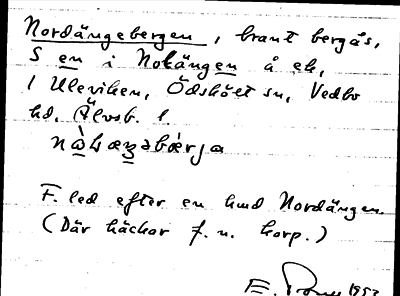 Nordängebergen, brant bergås,
S en i Nolängen å ek,
l Uleviken, Ödskölt sn, Vedbo
hd, Älvsb. l.
F. led efter en hmd Nordängen.
(Där häckar f. n. korp.)
E. 1953